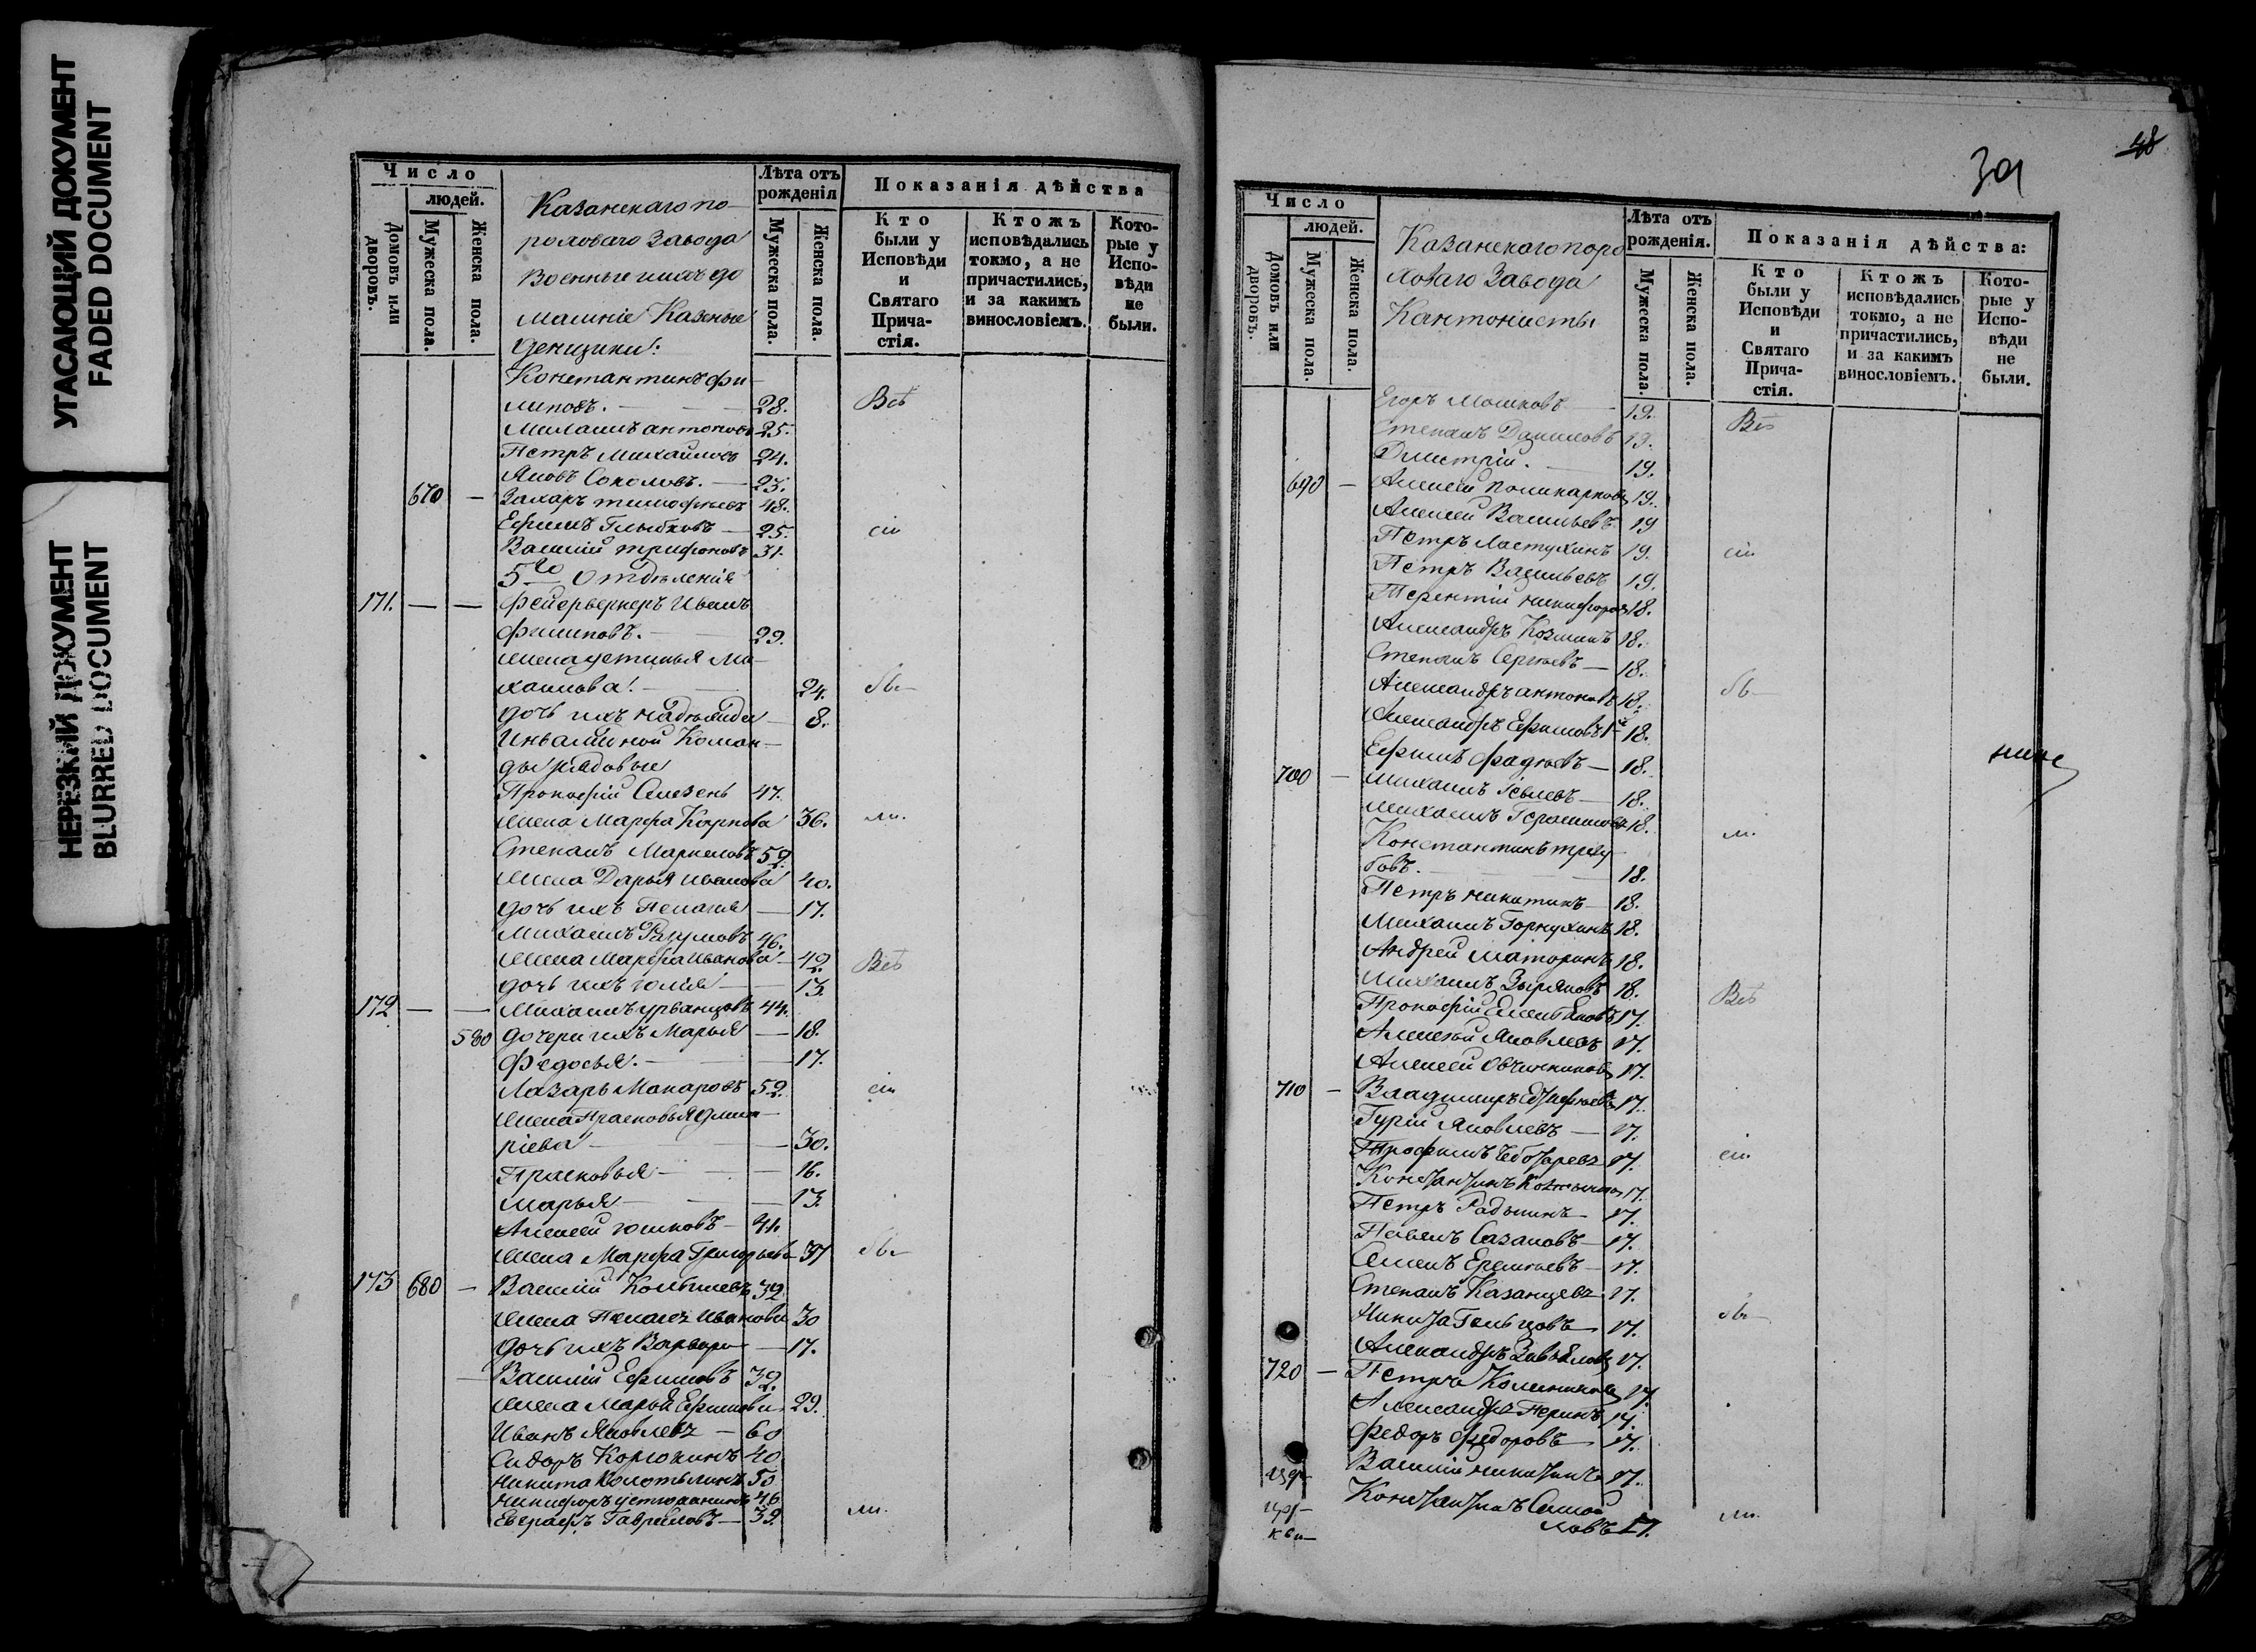 УГАСАЮЩИЙ ДОКУМЕНТ
FADED DOCUMENT
НЕРЕЗКИЙ ДОКУМЕНТ
BLURRED DOCUMENT
Число
людей.
Домовъ или дворовъ.
Мужеска пола.
Женска пола.
Казанскаго по-
роховаго Завода
Военные ихъ до
машніе Казеные
денщики:
Лѣта отъ рожденія
Мужеска пола.
Женска пола.
Показанія дѣйства
Кто были у Исповѣди и Святаго Причастія.
Ктожъ исповѣдались токмо, а не причастились, и за какимъ винословіемъ.
Которые у Исповѣди не были.
Константинъ Фи-
липовъ. 28. Всѣ
антоновъ 25.
Петръ Михайловъ 24.
Яковъ Соколовъ. 23.
670 — Захаръ тимофѣевъ 48.
Ефимъ 25. сіи
Василій трифоновъ 31.
5го Отдѣленія
171. — — Фейерверкеръ Иванъ
Филиповъ. 29.
жена устинья Ми-
хаилова. 24. бы-
дочь ихъ надѣжда 8.
Инвалидной Коман-
ды рядовые
Прокофій Слезень 47.
жена Марфа Карпова 36. ли.
Степанъ Маркеловъ 52.
жена Дарья иванова 40.
дочь ихъ Пелагія 17.
Михаилъ 46.
жена Марфа иванова 42. Всѣ
дочь ихъ юлія 13.
172 — — Михаилъ урванцовъ 44.
580 дочери ихъ Марья 18.
Федосья. 17.
Лазарь Макаровъ 52. сіи
жена Прасковья дмит-
ріева 30.
Прасковья 16.
Марья 13.
Алексей юшковъ 41.
жена Марфа Григорьева 37 бы-
173 680 — Василій 39.
жена Пелагея иванова 30
дочь ихъ Варвара 17.
Василій Ефимовъ 39.
жена Марья Ефимова 29.
Иванъ Яковлевъ 60
Сидоръ 40
Никита 50
Никифоръ устюжанинъ 46
Евграфъ Гавриловъ 39. ли.
48
39
Число
людей.
Домовъ или дворовъ.
Мужеска пола.
Женска пола.
Казанскаго поро
ховаго Завода
Кантонисты
Лѣта отъ рожденія.
Мужеска пола.
Женска пола.
Показанія дѣйства:
Кто были у Исповѣди и Святаго Причастія.
Ктожъ исповѣдались токмо, а не причастились, и за какимъ винословіемъ.
Которые у Исповѣди не были.
Егоръ Мошковъ 19. Всѣ
Степанъ Даниловъ 19.
Дмитрій. 19.
690 — Алексей поликарповъ 19.
Алексей Васильевъ 19
Петръ Ластухинъ 19. сіи
Петръ Васильевъ 19.
Терентій никифоровъ 18.
Александръ Козминъ 18.
Степанъ Сергѣевъ 18.
Александръ антоновъ 18. бы-
Александръ Ефимовъ 1й 18.
Ефимъ Фадѣевъ 18.
700 — Михаилъ 18.
Михаилъ Герасимовъ 18. ли.
Константинъ трегу
бовъ. 18.
Петръ никитинъ 18.
Михаилъ Горнухинъ 18.
Андрей Маторинъ 18.
Михаилъ Зыряновъ 18. Всѣ
Прокофій 17.
Алексей Яковлевъ 17.
Алексей Овчинниковъ 17.
710 — Владимиръ 17.
Гурій Яковлевъ 17.
Трофимъ Чебохаревъ 17. сіи
Константинъ 17.
Петръ Радыгинъ 17.
Павелъ Сазановъ 17.
Семенъ Еремѣевъ 17.
Степанъ Казанцевъ 17.
Никита Гольцовъ 17. бы
Александръ Завьяловъ 17.
720 — Петръ 17.
Александръ Перинъ 17.
Федоръ Федоровъ 17.
Василій никитинъ 17.
Константинъ Самой
ловъ 17. ли.